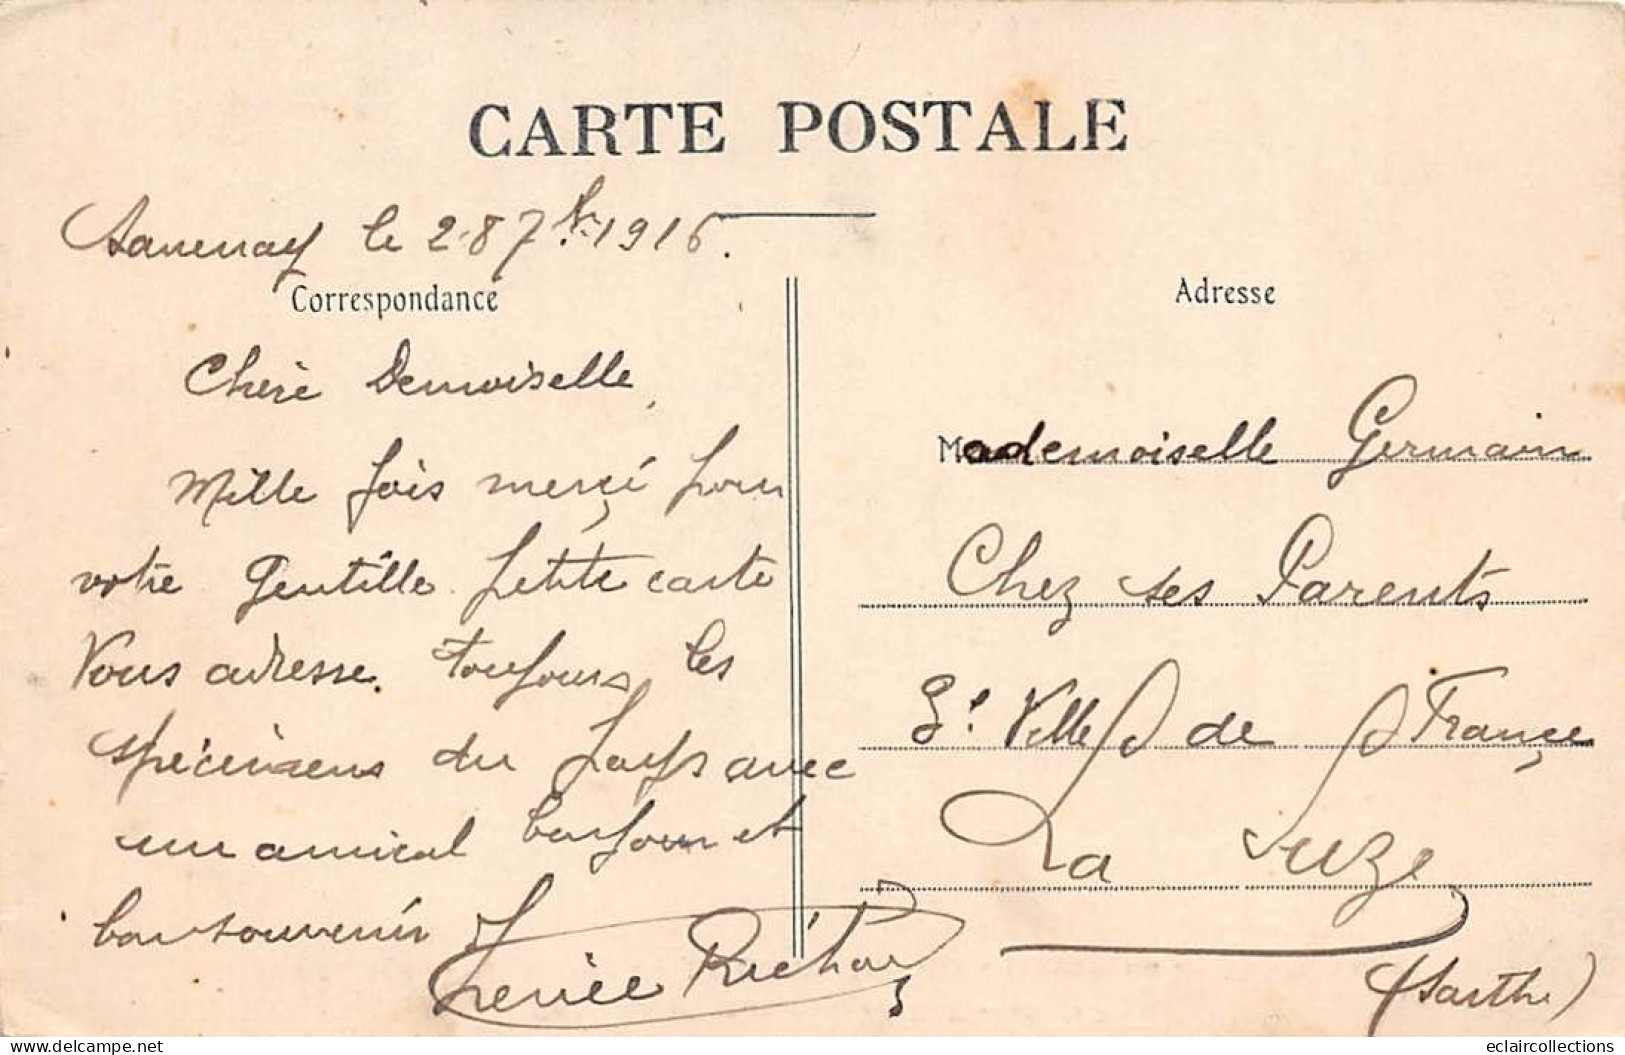 CARTE POSTALE
le 28 7bre 1916.
Correspondance
Chère Demoiselle,
Mille fois merçi pour
votre Gentille petite carte
Vous adresse. toujours les
spécimens du pays avec
un amical bonjour et
bon souvenir
Richard
Adresse
Mademoiselle Germain
Chez ses Parents
Ville de Françe
La Suze
(Sarthe)
eclaircollections
www.delcampe.net